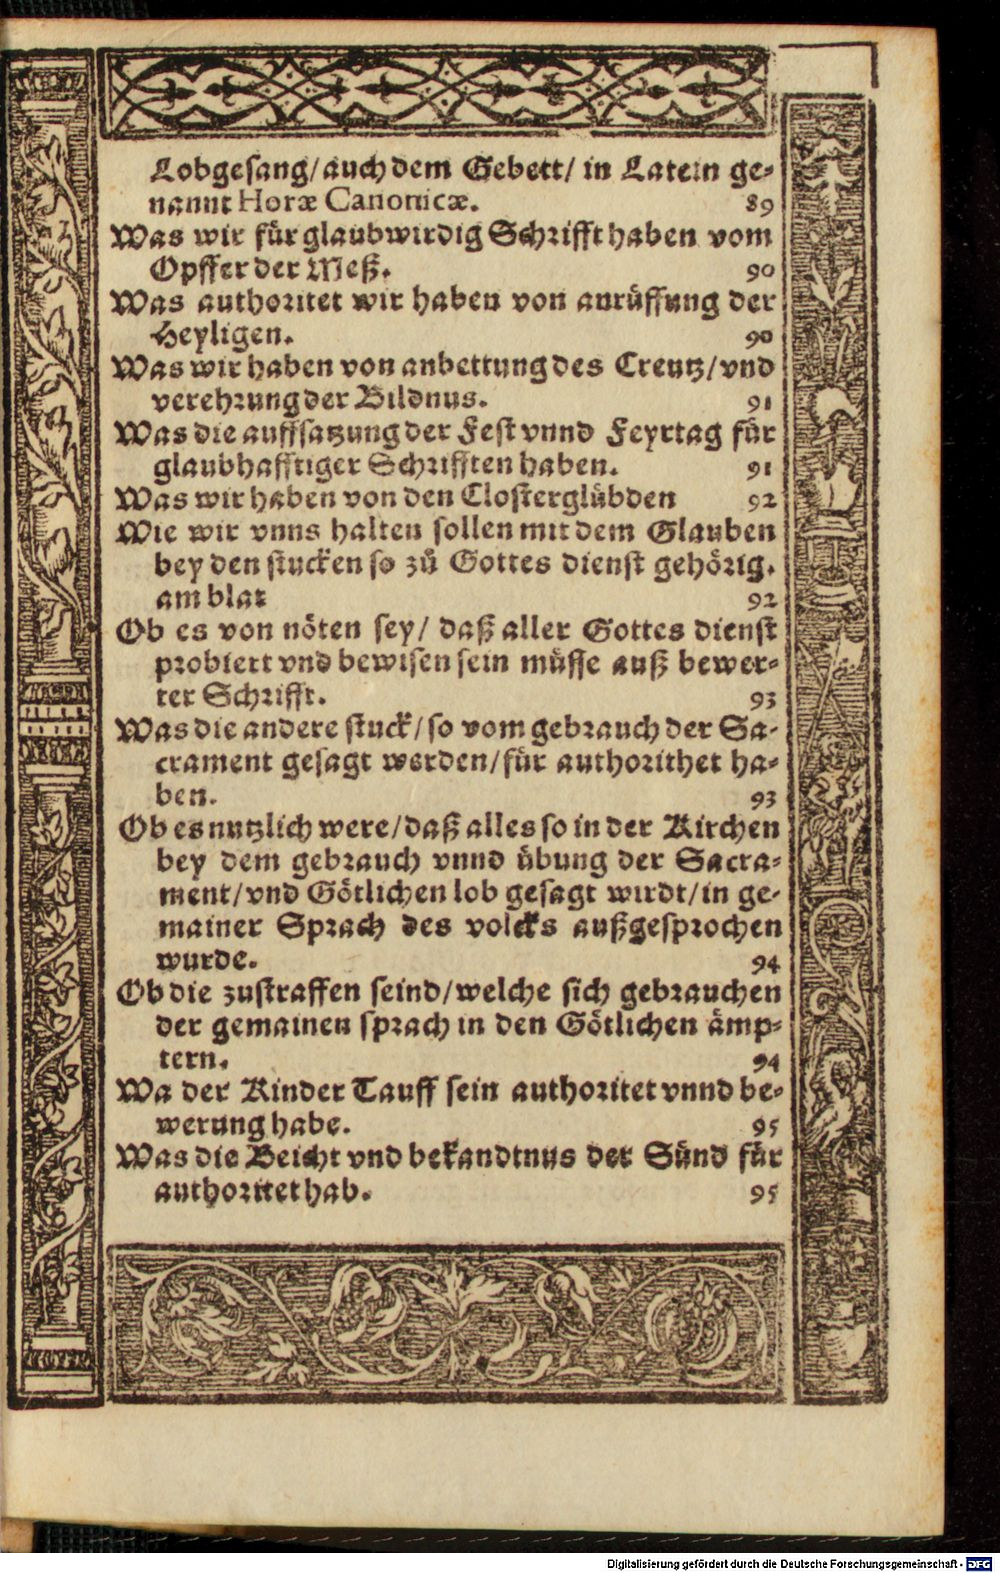 Lobgesang/ auch dem Gebett/ in Latein ge-
nannt Horæ Canonicæ. 89
Was wir für glaubwirdig Schrifft haben vom
Opffer der Meß. 90
Was authoritet wir haben von anrüffung der
Heyligen. 90
Was wir haben von anbettung des Creutz/ vnd
verehrung der Bildnus. 91
Was die auffsatzung der Fest vnnd Feyrtag für
glaubhafftiger Schrifften haben. 91
Was wir haben von den Closterglübden 92
Wie wir vnns halten sollen mit dem Glauben
bey den stucken so zů Gottes dienst gehörig.
am blat 92
Ob es von nöten sey/ daß aller Gottes dienst
probiert vnd bewisen sein müsse auß bewer-
ter Schrifft. 93
Was die andere stuck/ so vom gebrauch der Sa-
crament gesagt werden/ für authorithet ha-
ben. 93
Ob es nutzlich were/ daß alles so in der Kirchen
bey dem gebrauch vnnd übung der Sacra-
ment/ vnd Götlichen lob gesagt wirdt/ in ge-
mainer Sprach des volcks außgesprochen
wurde. 94
Ob die zustraffen seind/ welche sich gebrauchen
der gemainen sprach in den Götlichen ämp-
tern. 94
Wa der Kinder Tauff sein authoritet vnnd be-
werung habe. 95
Was die Beicht vnd bekandtnus der Sünd für
authoritet hab. 95
Digitalisierung gefördert durch die Deutsche Forschungsgemeinschaft - DFG